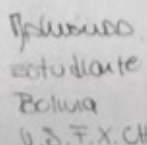 estudiante
Bolivia
U.S.F.X.CH